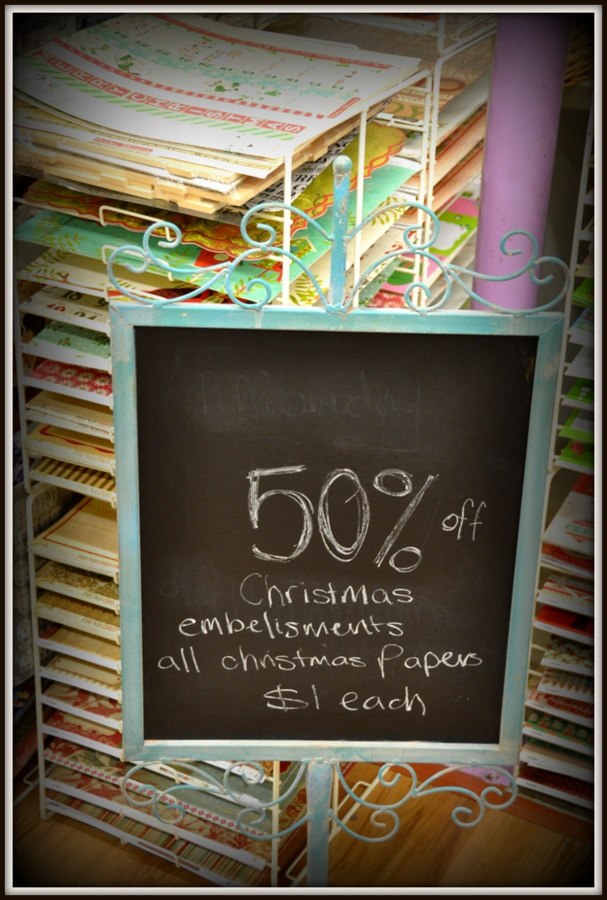 50% off
Christmas
embelisments
all christmas Papers
$1 each